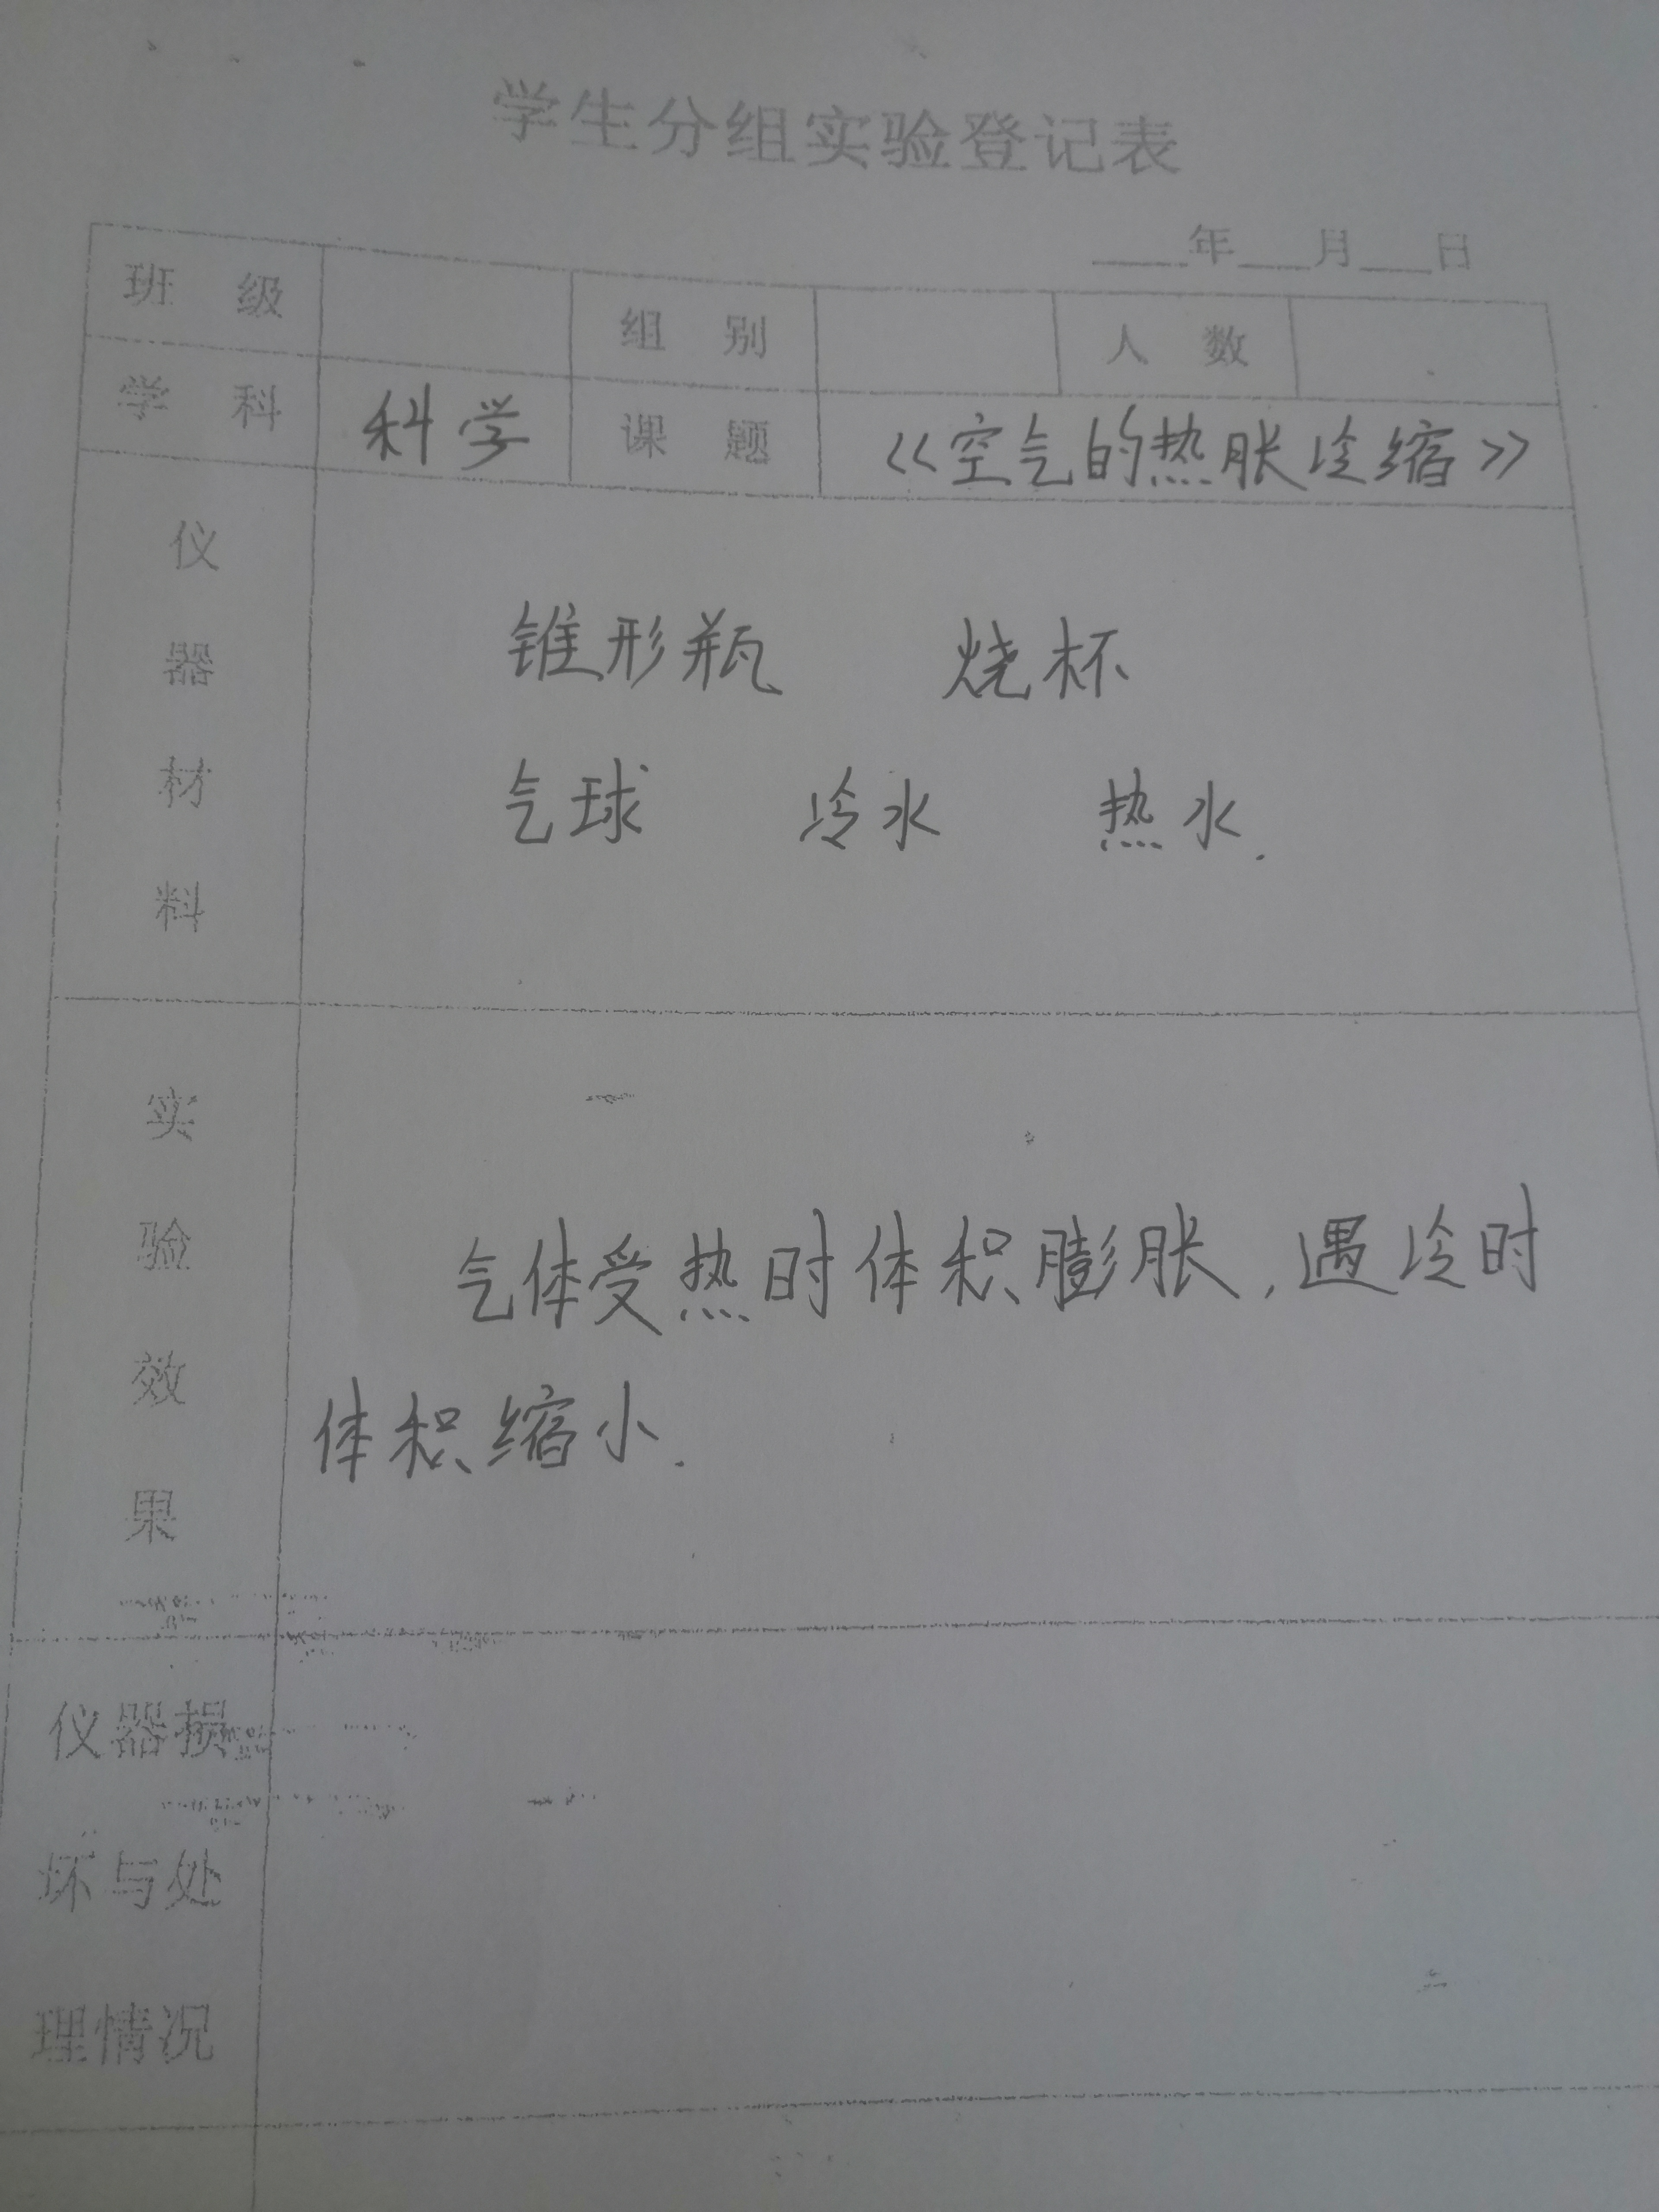 学生分组实验登记表
____年___月___日
班 级 组 别 人 数
学 科 科学 课 题 《空气的热胀冷缩》
仪器材料
锥形瓶 烧杯
气球 冷水 热水.
实验效果
气体受热时体积膨胀,遇冷时
体积缩小.
仪器损
坏与处
理情况